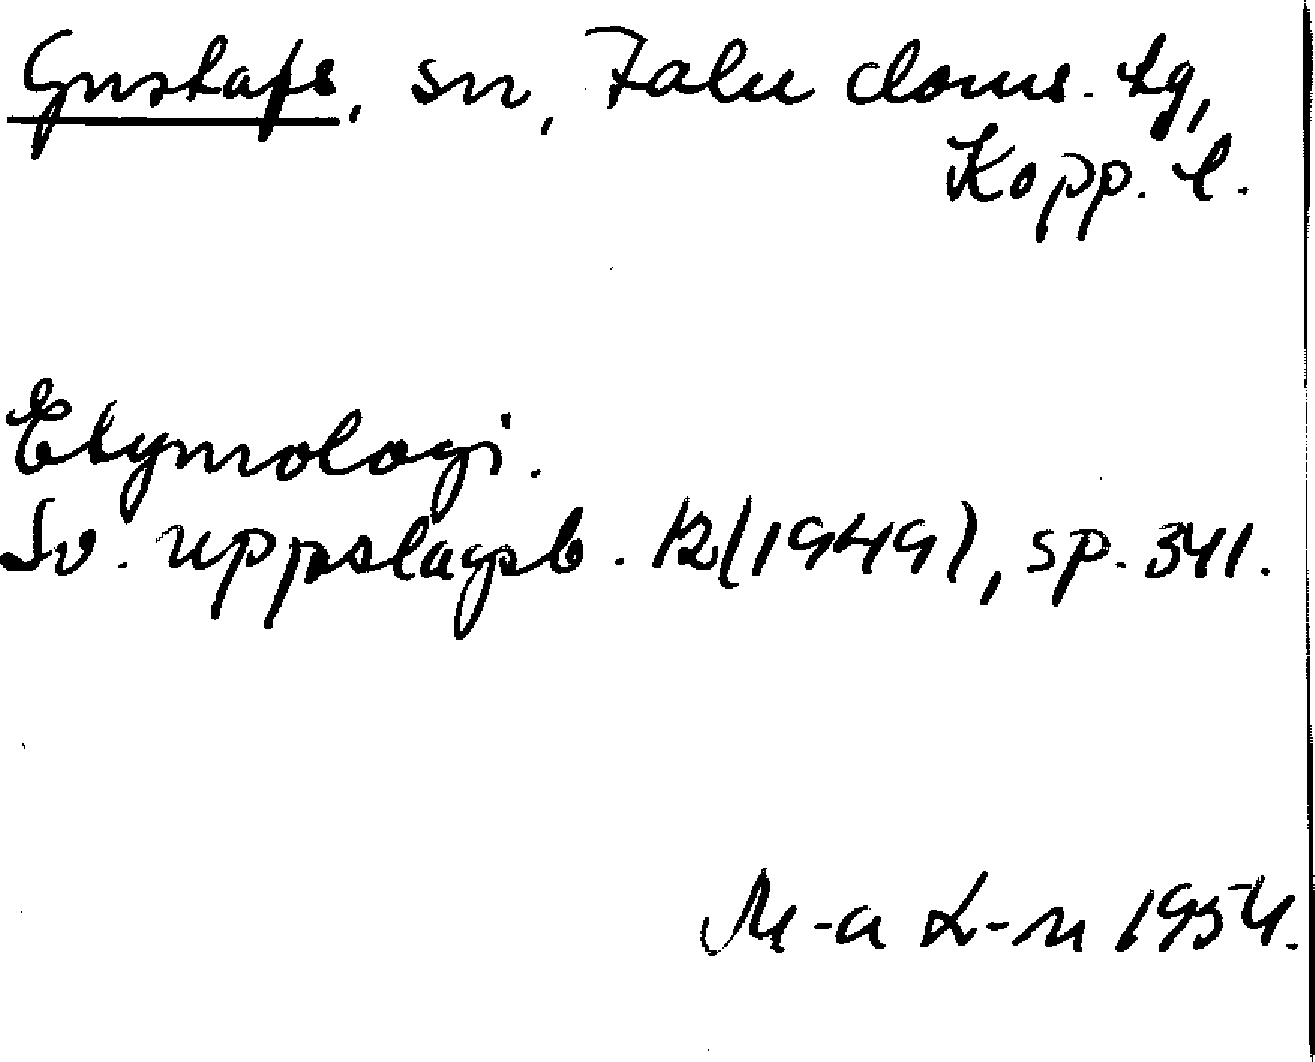 Gustafs, sn, Falu doms. lg,
Kopp. l.
Etymologi.
Sv. uppslagsb. 12(1949), sp. 341.
M-a L-n 1954.